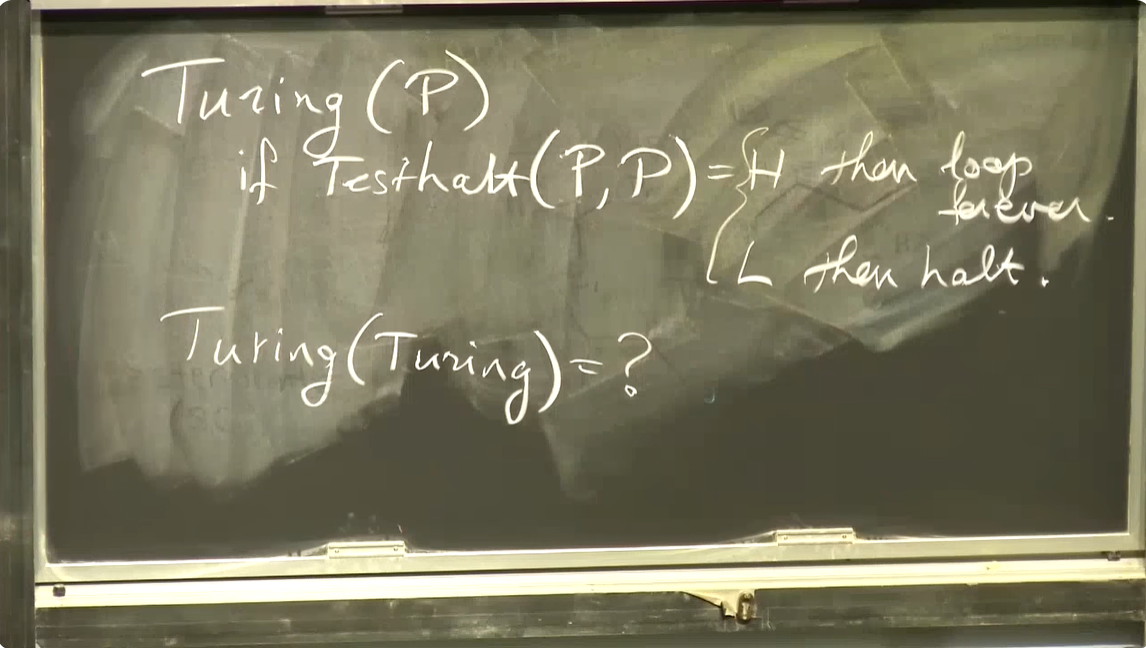 Turing(P)
if Testhalt(P,P)={H then loop
forever.
L then halt.
Turing(Turing)=?